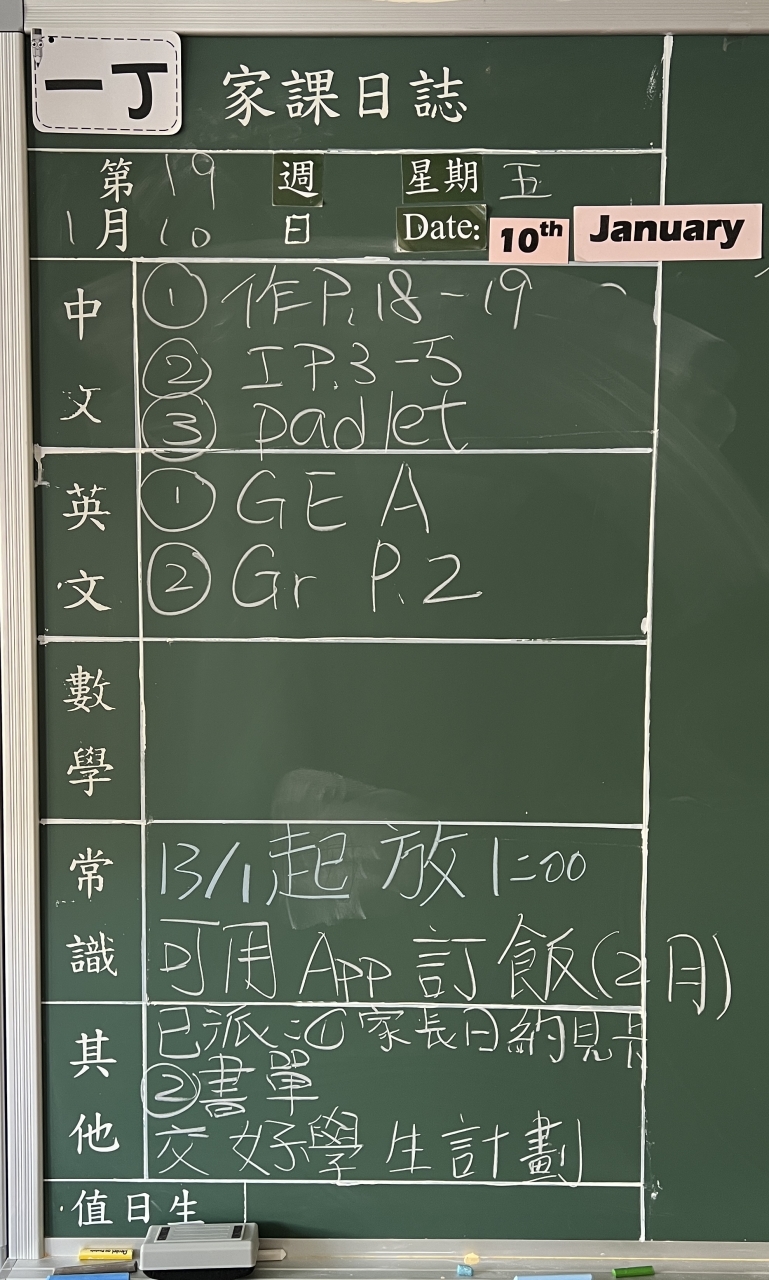 一丁 家課日誌
第 19 週 星期 五
1月 10 日 Date: 10th January
中文
① 作 P.18-19
② 工 P.3-5
③ padlet
英文
① GE A
② Gr P.2
數學
常識
13/1起 放 1:00
可用 App 訂飯(2月)
其他
已派:① 家長日約見卡
② 書單
交 好學生計劃
值日生